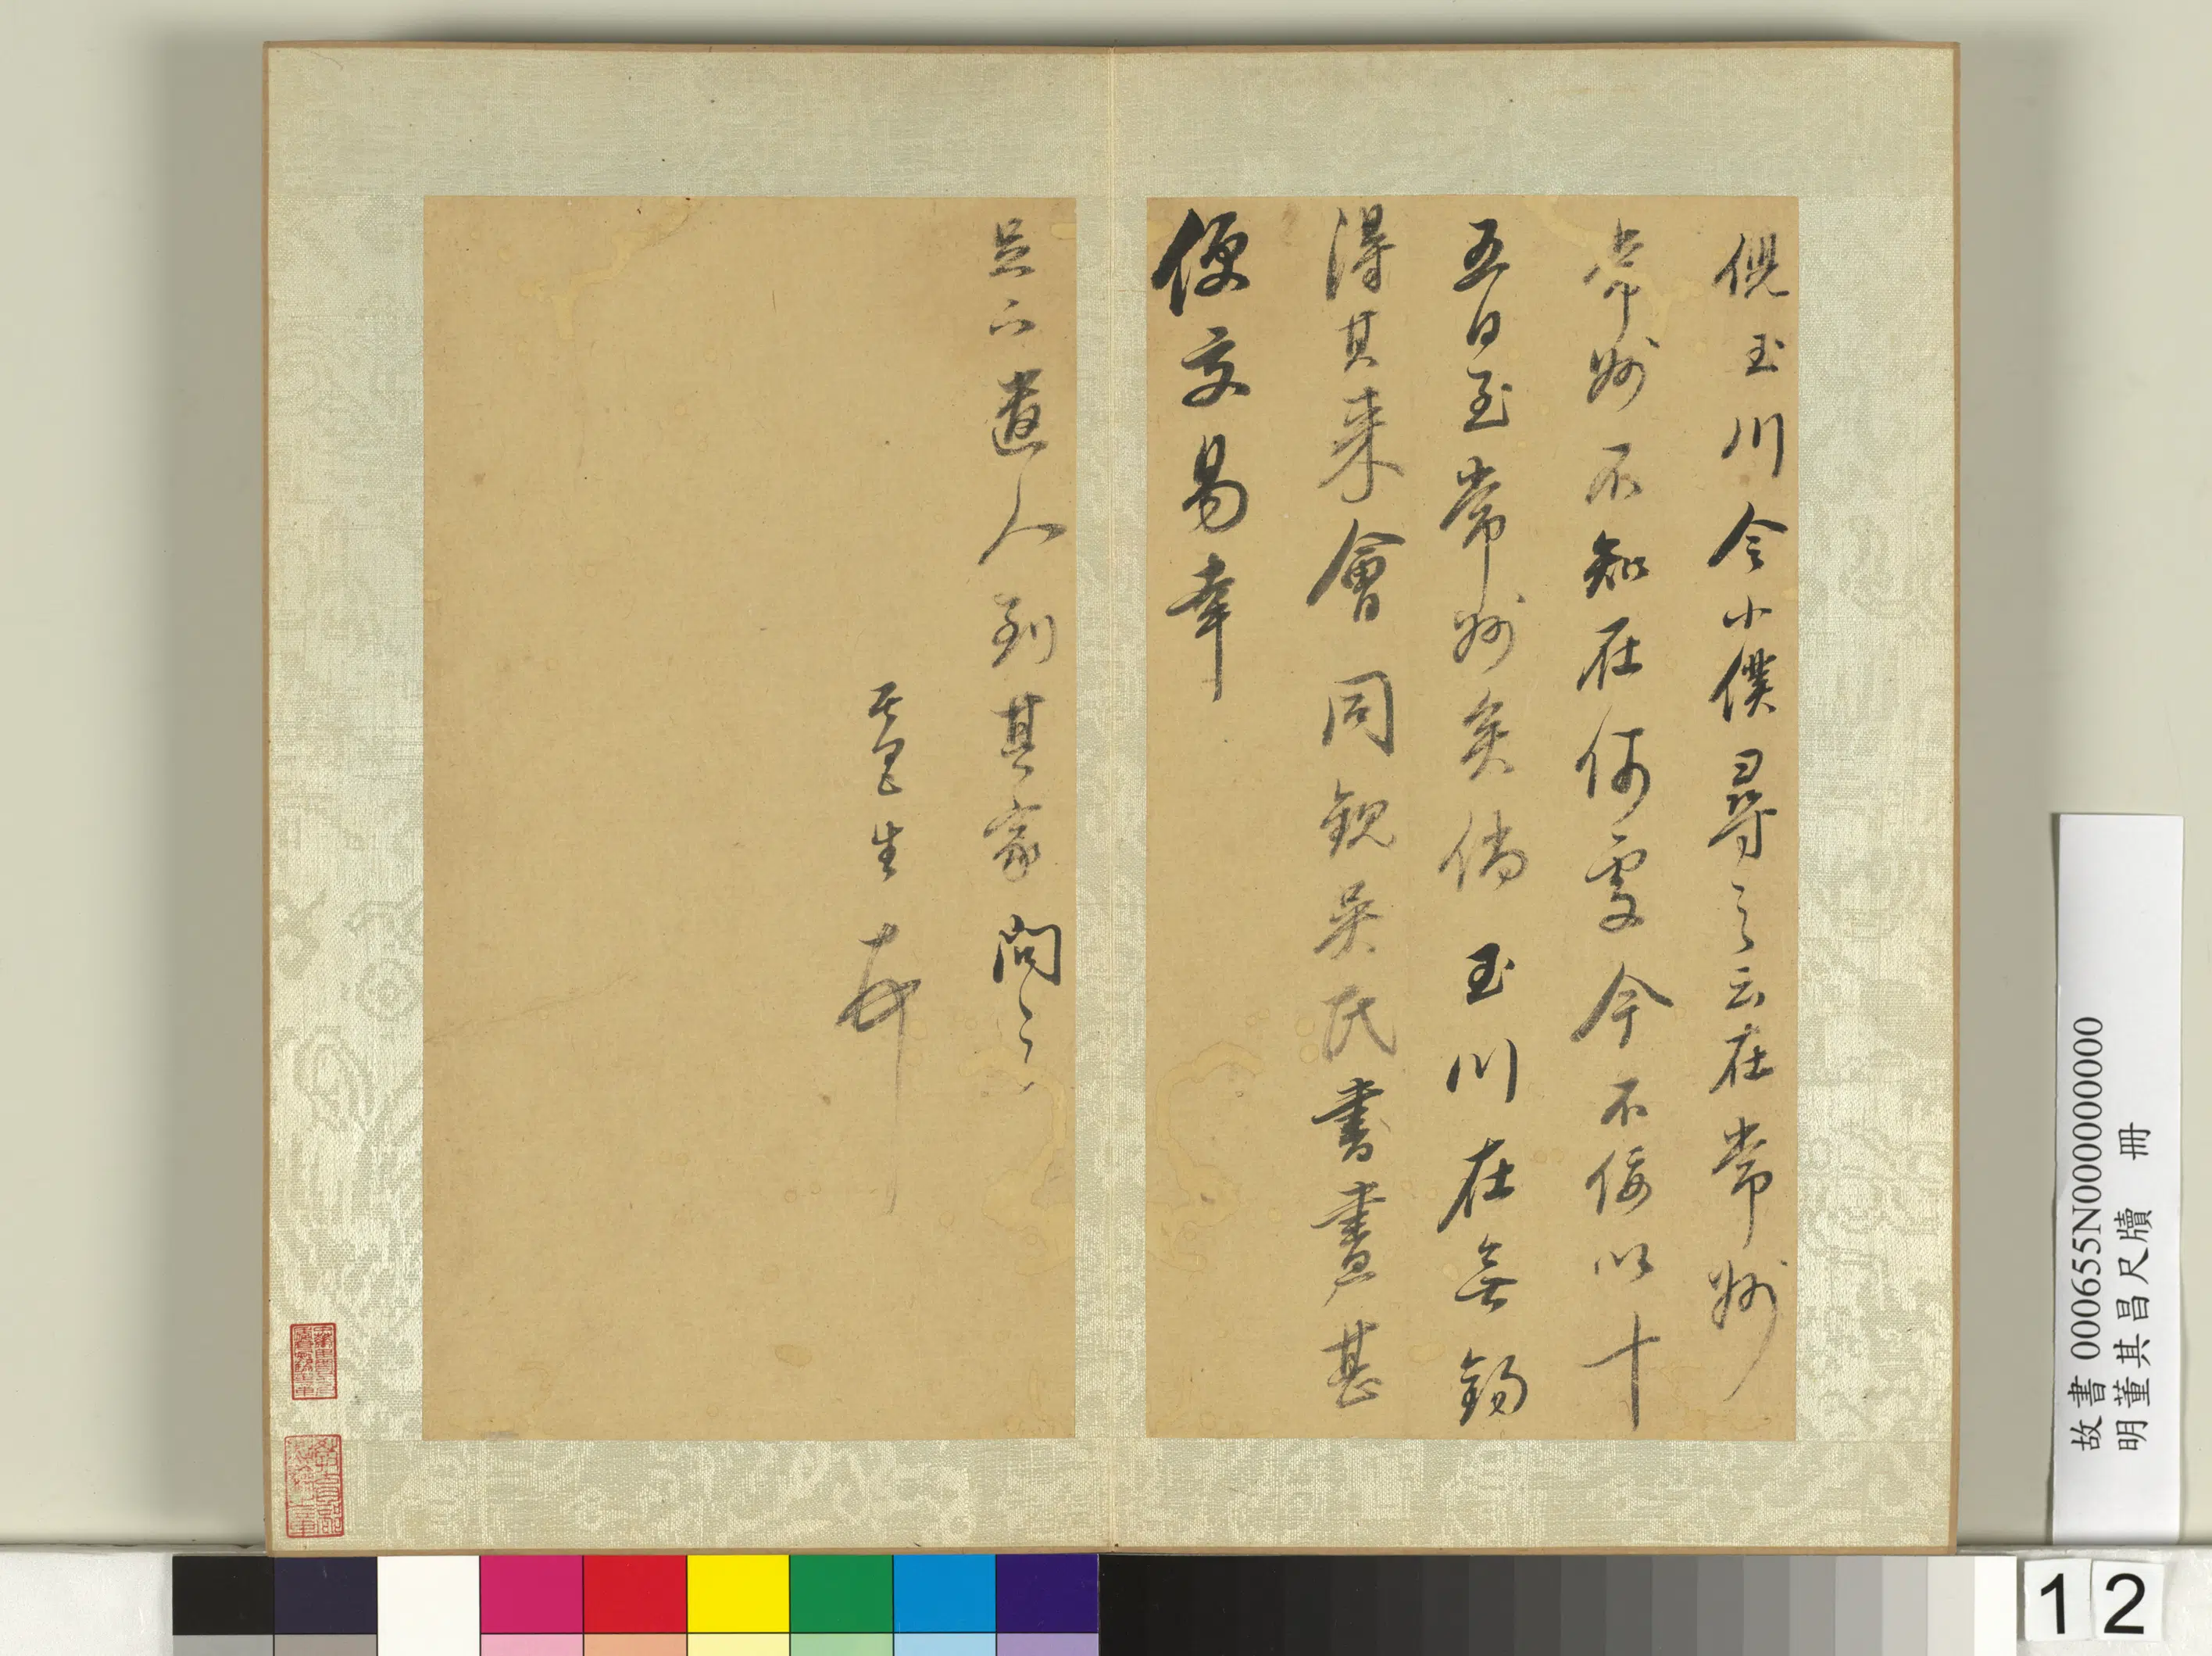 倪玉川令小僕尋之云在常州
常州不知在何處今不佞以十
五日至常州矣倘玉川在無錫
得其來會同觀吳氏書畫甚
便交易幸
足下遣人到其家問之
其昌生頓
故書 000655N000000000
明董其昌尺牘 冊
12